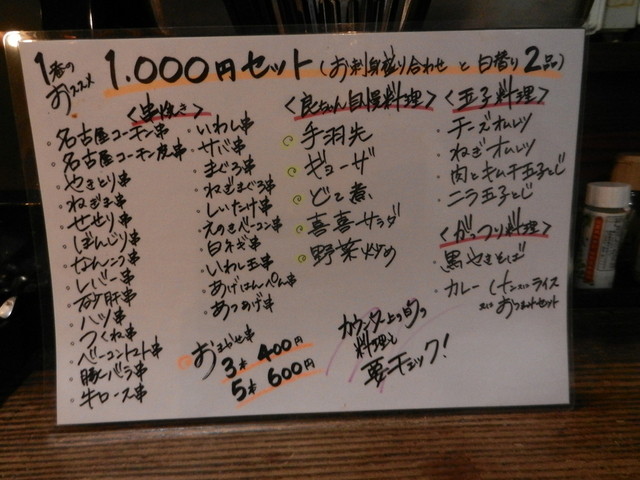 1番のおススメ 1.000円セット(お刺身盛り合わせ と 日替り2品)
<串焼き>
・名古屋コーチン串
・名古屋コーチン皮串
・やきとり串
・ねぎま串
・せせり串
・ぼんじり串
・なんこつ串
・レバー串
・砂肝串
・ハツ串
・つくね串
・ベーコントマト串
・豚バラ串
・牛ロース串
・いわし串
・サバ串
・まぐろ串
・ねぎまぐろ串
・しいたけ串
・えのきベーコン串
・白ネギ串
・いわし玉串
・あげはんぺん串
・あつあげ串
おまかせ串
3本 400円
5本 600円
<良ちゃん自慢料理>
手羽先
ギョーザ
どて煮
喜喜サラダ
野菜炒め
カウンター上の旬の
料理も
要チェック!
<玉子料理>
・チーズオムレツ
・ねぎオムレツ
・肉とキムチ玉子とじ
・ニラ玉子とじ
<がっつり料理>
・黒やきそば
・カレー
ライス
おつまみセット